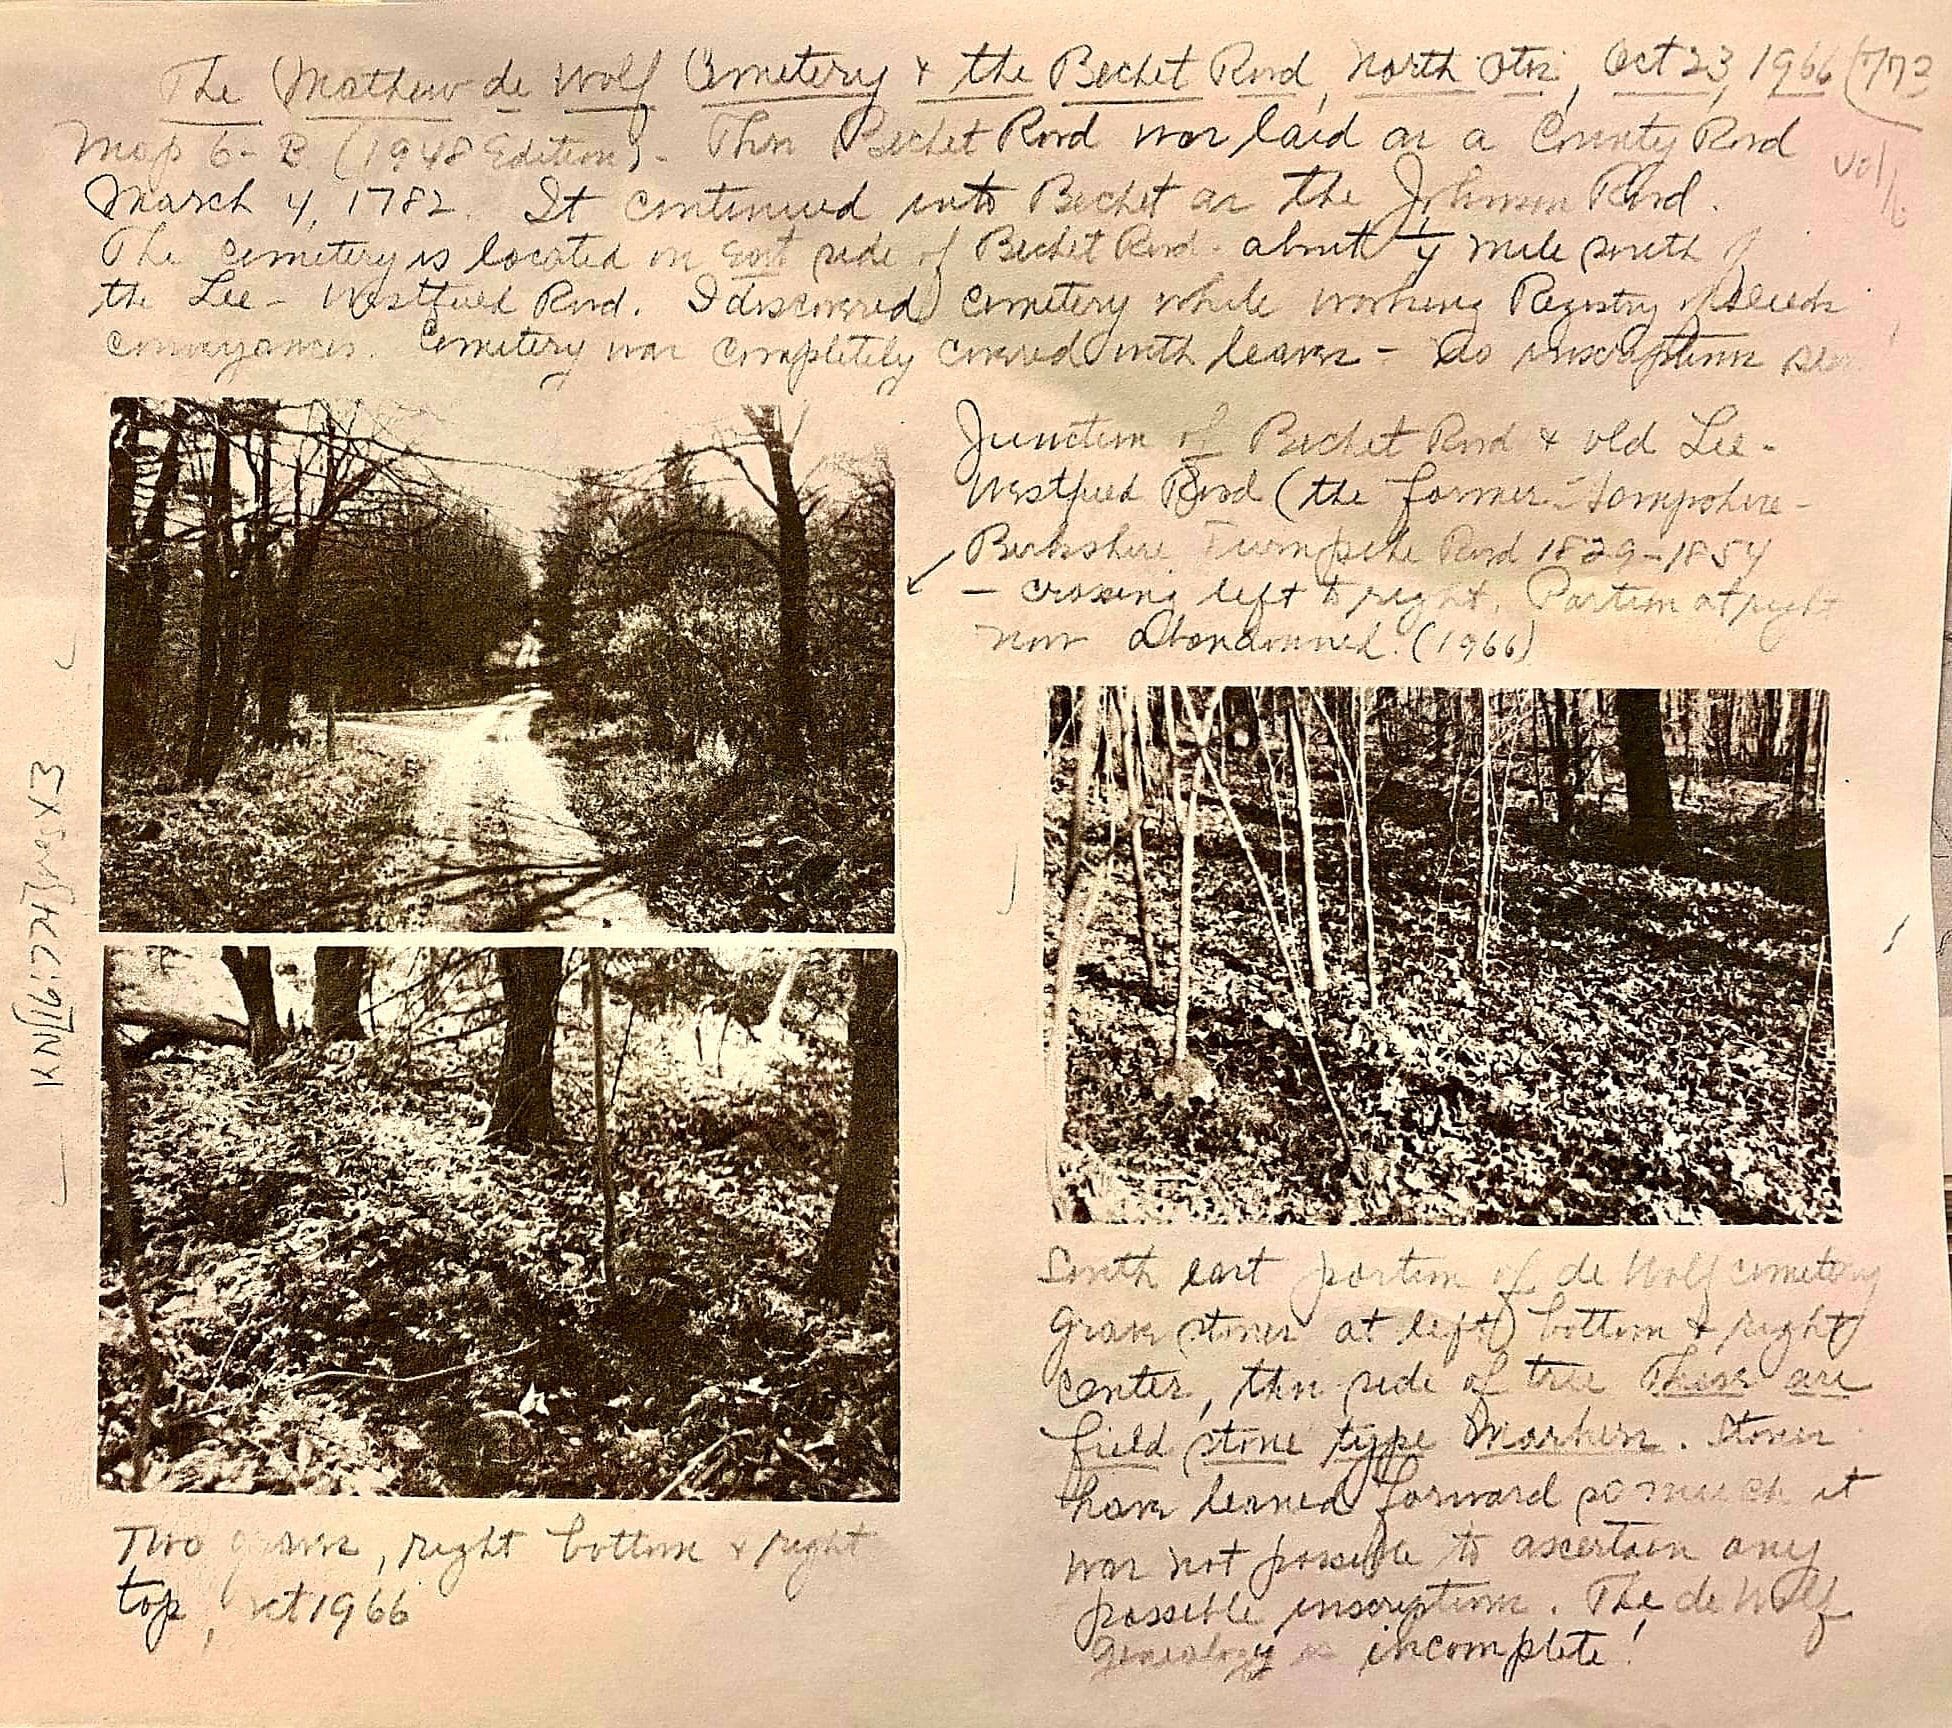 The Mathew de Wolf Cemetery & the Becket Road, North Otis, Oct 23, 1966 (772
Map 6-B (1948 Edition). This Becket Road was laid as a County Road
Vol 16
March 4, 1782. It continued into Becket as the Johnson Road.
The cemetery is located on East side of Becket Road - about 1/4 mile south of
the Lee - Westfield Road. I discovered cemetery while working Registry of Deeds
conveyances. Cemetery was completely covered with leaves - No inscription
Junction of Becket Road & old Lee-
Westfield Road (the former Hampshire-
Berkshire Turnpike Road 1829-1854
- crossing left to right. Portion at right
now abandonned. (1966)
South east portion of de Wolf cemetery
Grave stones at left bottom & right
center, this side of tree These are
field stone type markers. Stones
have leaned forward so much it
was not possible to ascertain any
possible inscription. The de Wolf
Genealogy is incomplete!
Two graves, right bottom & right
top, Oct 1966